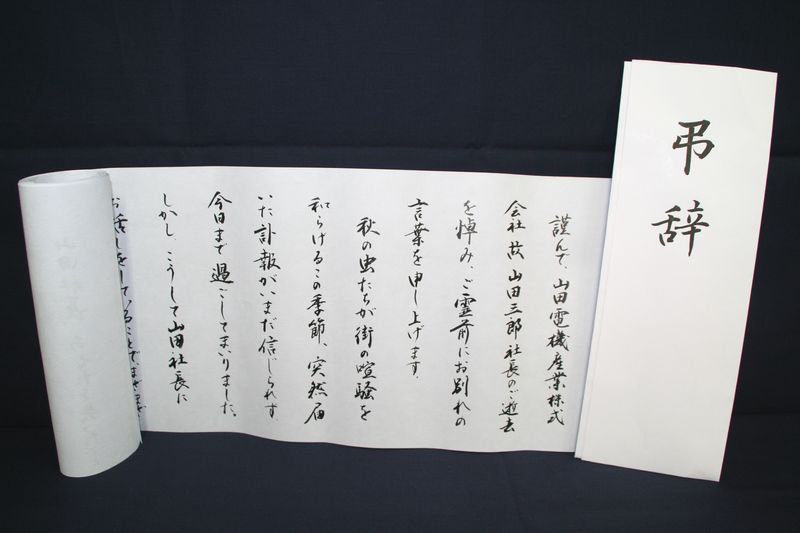 弔辞
謹んで、山田電機産業株式
会社 故 山田三郎社長のご逝去
を悼み、ご霊前にお別れの
言葉を申し上げます。
秋の虫たちが街の喧騒を
和らげるこの季節、突然届
いた訃報がいまだ信じられず、
今日まで過ごしてまいりました。
しかし、こうして山田社長に
お話しをしていることでまざまざ